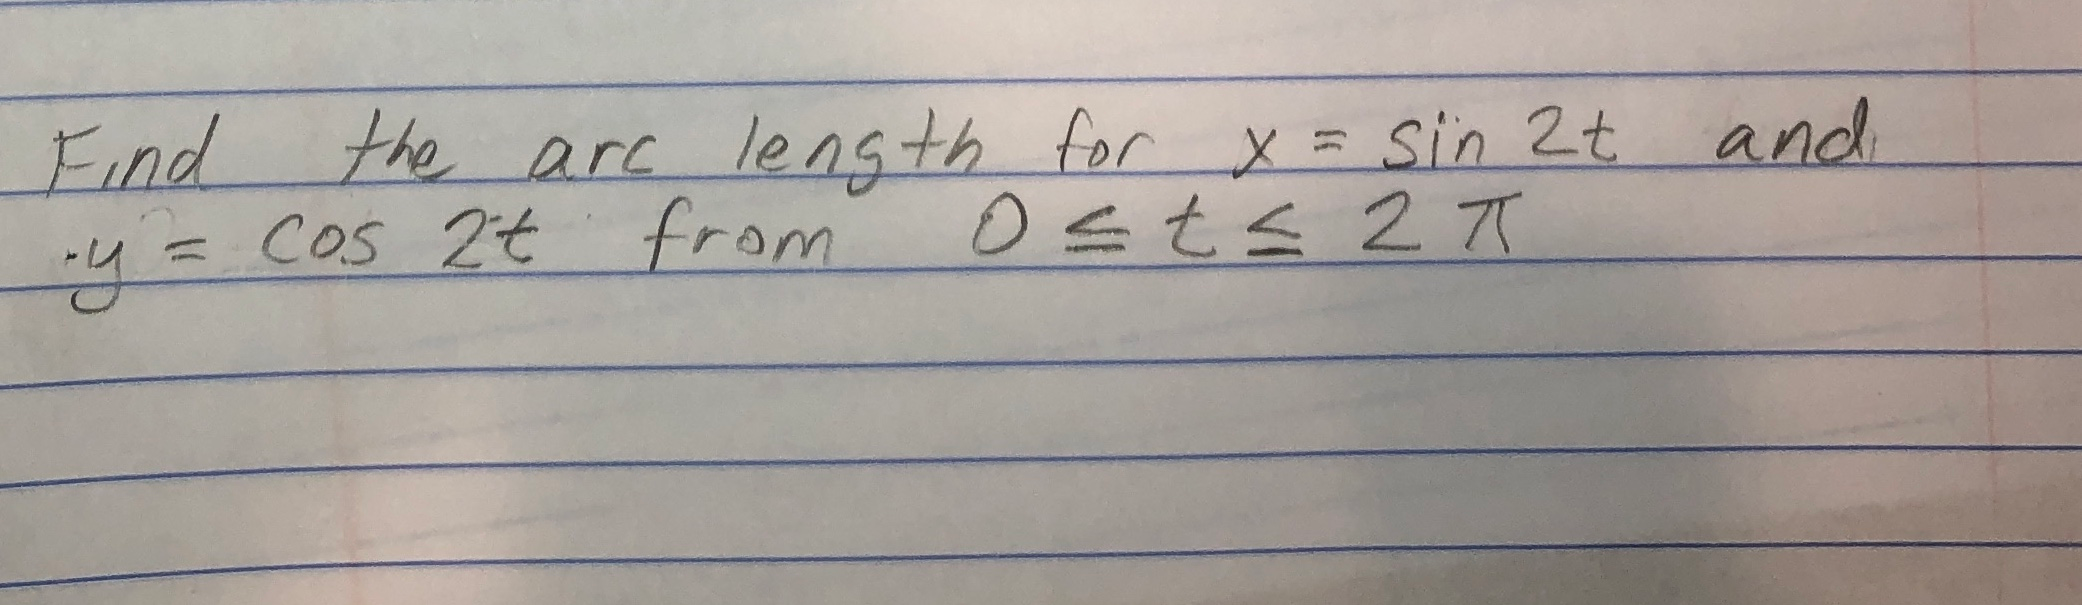 Find the arc length for x = sin 2t and
y = cos 2t from 0 ≤ t ≤ 2π